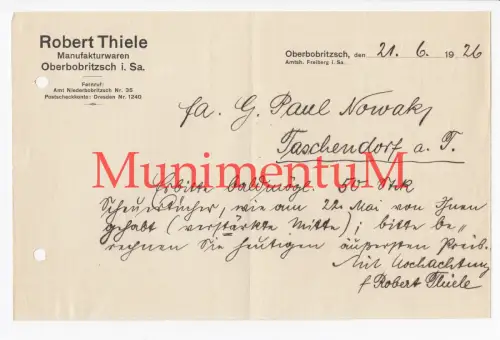 Robert Thiele
Manufakturwaren
Oberbobritzsch i. Sa.
Fernruf:
Amt Niederbobritzsch Nr. 35
Postscheckkonto: Dresden Nr. 1240
Oberbobritzsch, den 21. 6. 1926
Amtsh. Freiberg i. Sa.
Fa. G. Paul Nowak,
Taschendorf a. T.
MunimentuM
Erbitte baldmögl. 50 Stck
Scheuertücher, wie am 22. Mai von Ihnen
gehabt (verstärkte Mitte); bitte be„
rechnen Sie heutigen äußersten Preis.
Mit Hochachtung
f Robert Thiele